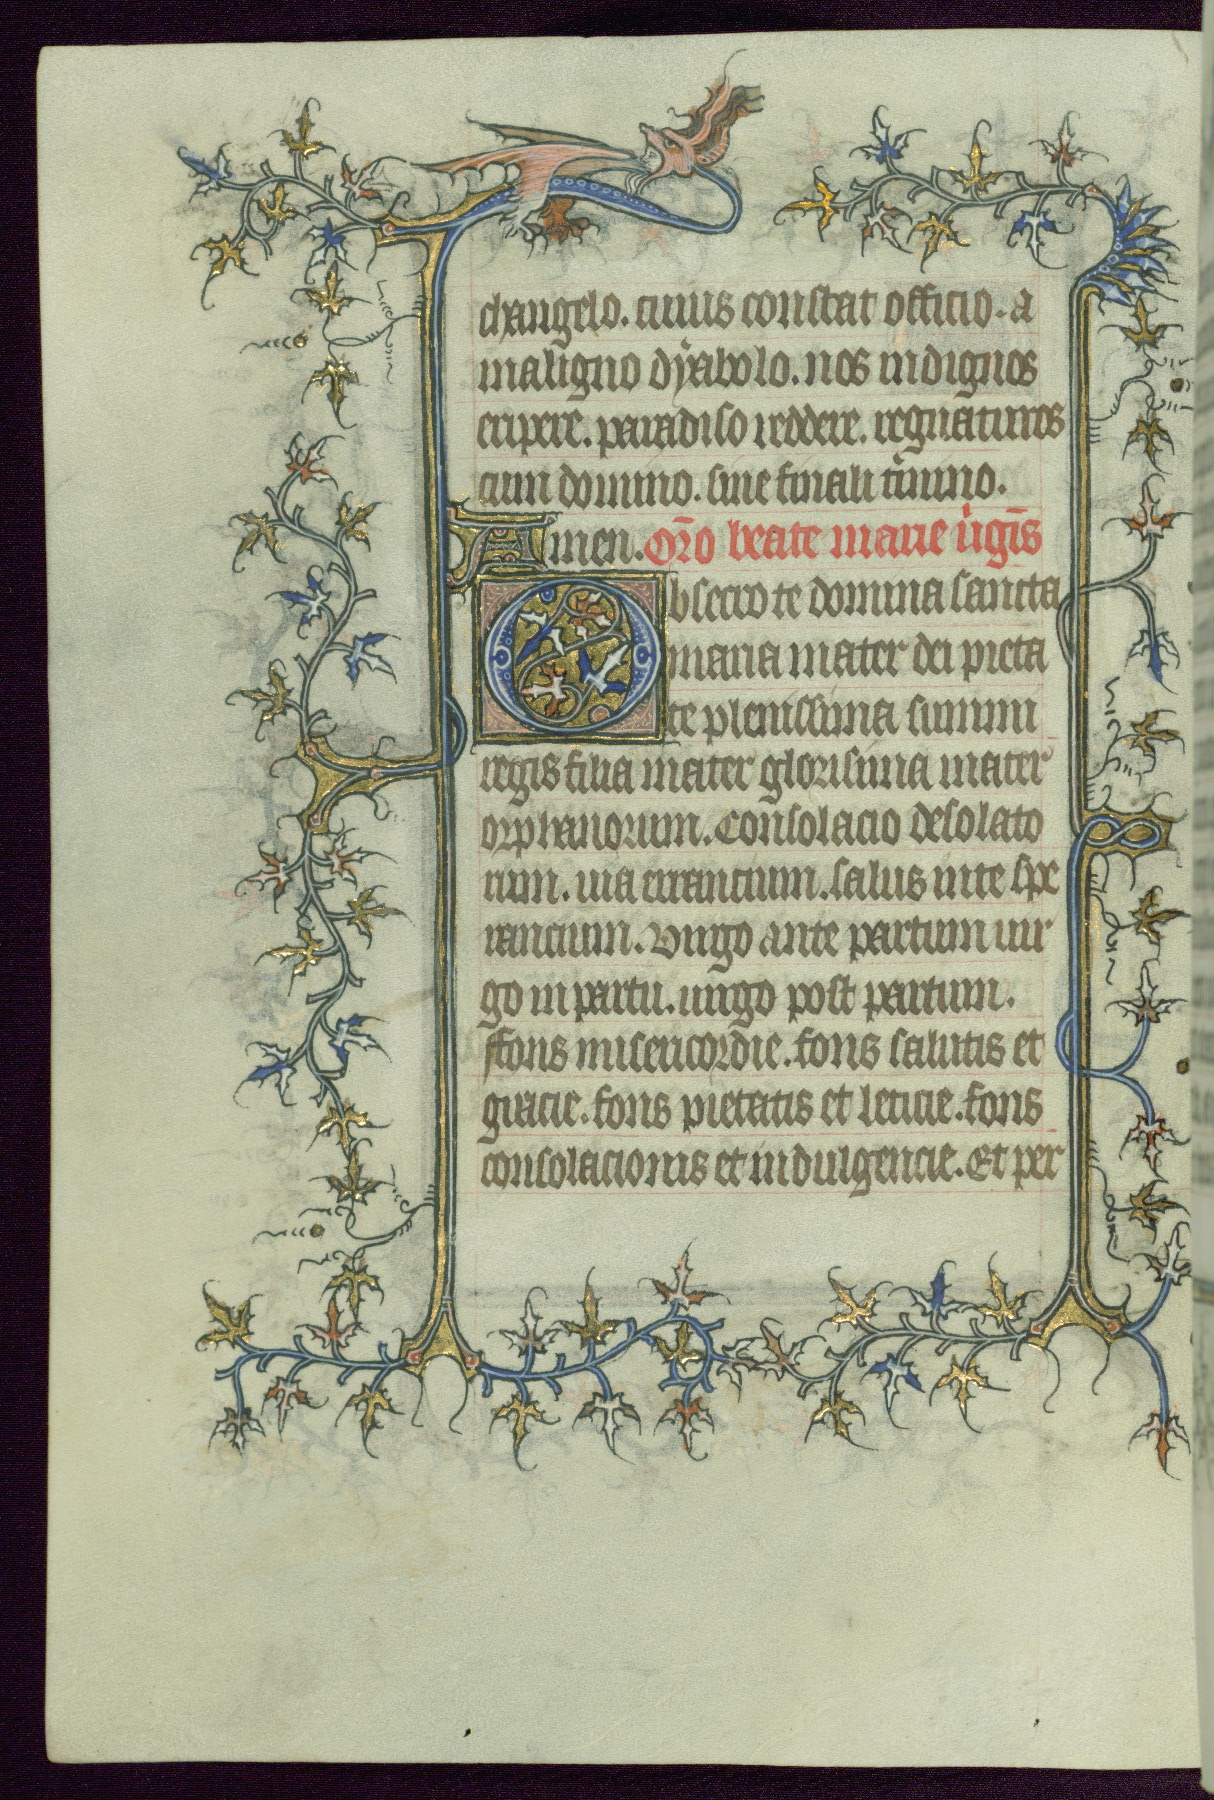 changelo. cuius constat officio. a
maligno dyabolo. nos indignos
eripere. paradiso reddere. regnaturos
cum domino. sine finali t'mino.
Amen. Or̄o beate marie u'gīs
Obsecro te domina sancta
maria mater dei pieta
te plenissima summi
regis filia mater glorisima mater
orphanorum. Consolacio desolato
rum. uia errancium. salus in te spe
rancium. Virgo ante partum uir
go in partu. uirgo post partum.
ffons misericordie. fons salutis et
gracie. fons pietatis et leticie. fons
consolacionis et indulgencie. Et per